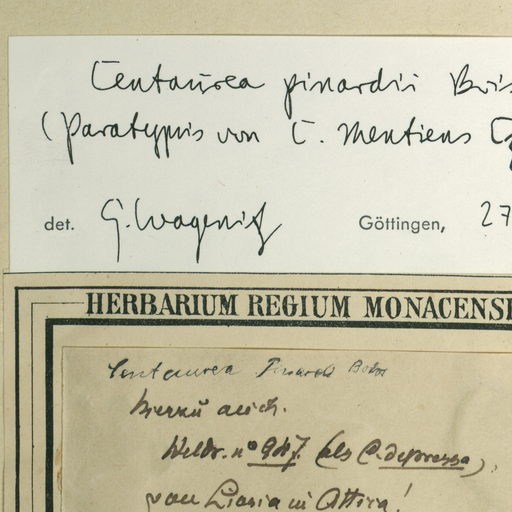 Centaurea pinardii Bois
(Paratypus von C. mentiens
det. G. Wagenitz Göttingen, 27
HERBARIUM REGIUM MONACENSE
Centaurea Pinardi Boiss
hierzu auch.
Heldr. nº 947. (als C. depressa),
von in Attica!